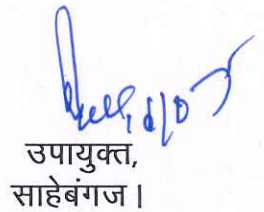 उपायुक्त,
साहेबंगज।